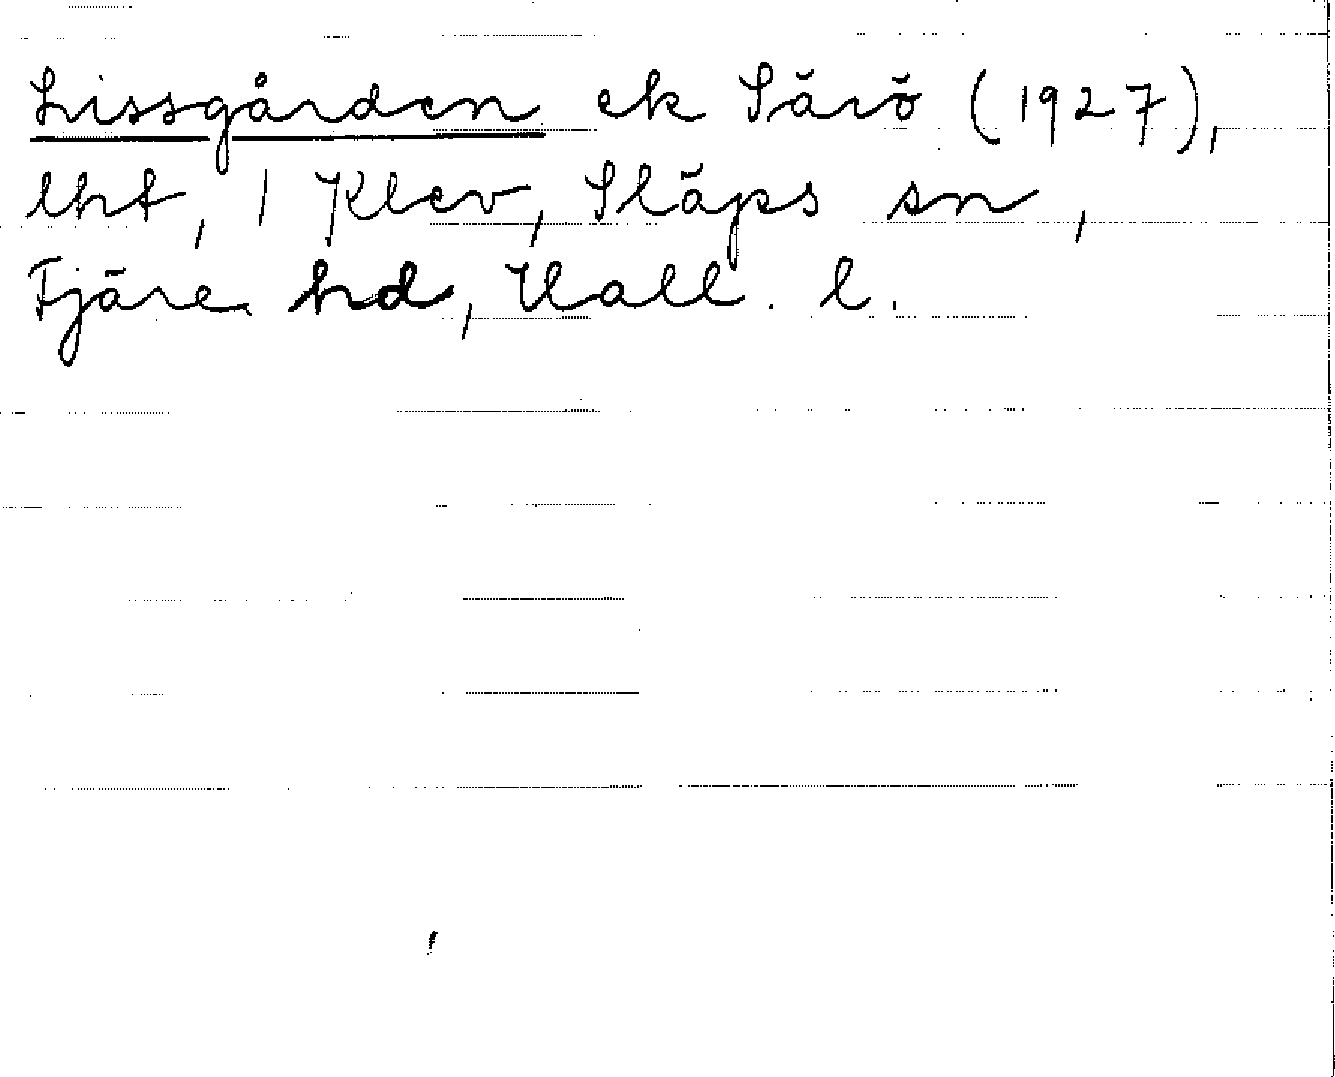 Lissgården ek Särö (1927),
lht, 1 Klev, Släps sn,
Fjäre hd, Hall. l.